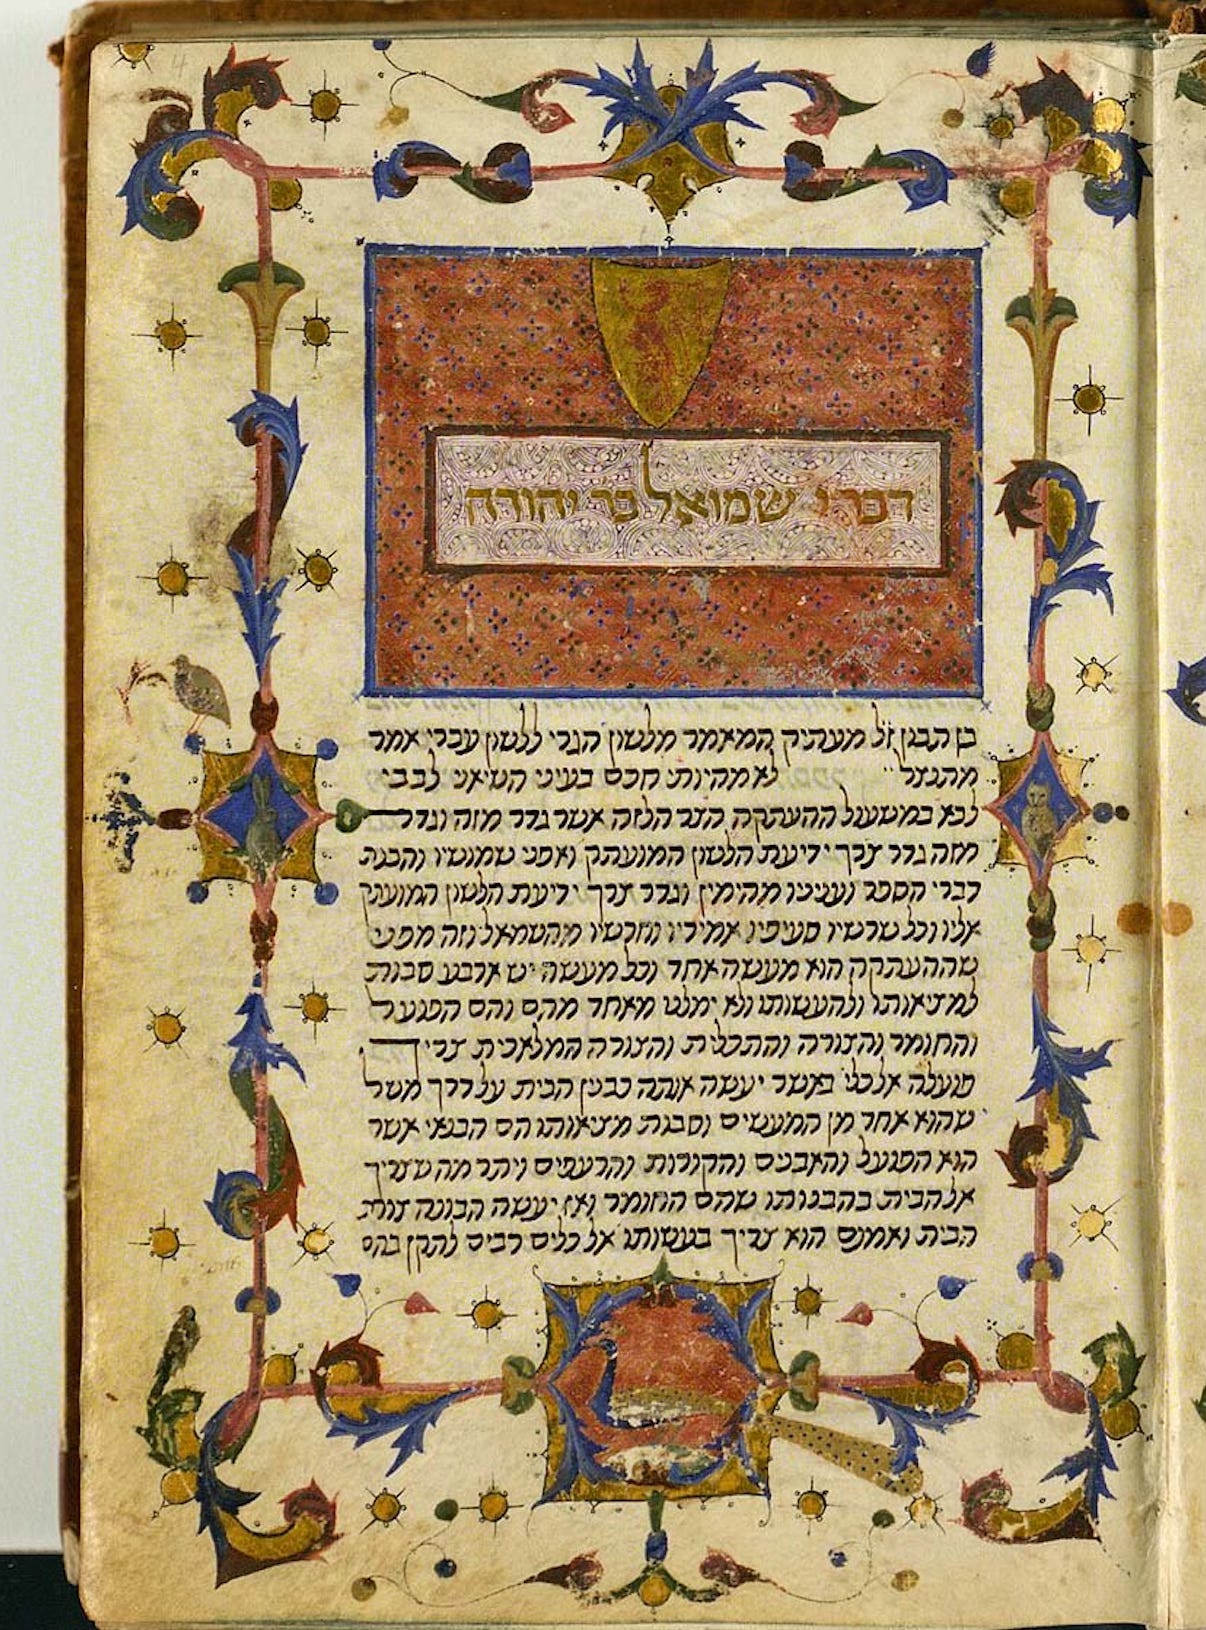 דברי שמואל בר יהודה
בן תבון ז"ל מעתיק המאמר מלשון הגרי ללשון עברי אמר
מהגזל לא מהיות חכם בעיני השיאני לבבי
לבא במשעול ההעתקה הצר הלזה אשר גדר מזה וגדר
מזה גדר צרך ידיעת הלשון המועתק ואפני שמושיו והבנת
דברי הספר ועניניו מהימין וגדר צרך ידיעת הלשון המועתק
אליו וכל שרשיו סעיפיו אמיריו וחרשיו מהשמאל וזה מפני
שההעתקה הוא מעשה אחד וכל מעשה יש ארבע סבות
למציאותו ולהעשותו ולא ימלט מאחד מהם והם הפועל
והחומר והצורה והתכלית והצורה המלאכית צריך
פועלה אל כלי באשר יעשה אותה כבנין הבית על דרך משל
שהוא אחד מן המעשים וסבות מציאותו הם הבנאי אשר
הוא הפועל והאבנים והקורות והרעפים ויתר מה שצריך
אל הבית בהבנותו שהם החומר ואז יעשה הבונה צורת
הבית ואמנם הוא צריך בעשותו אל כלים רבים לתקן בהם